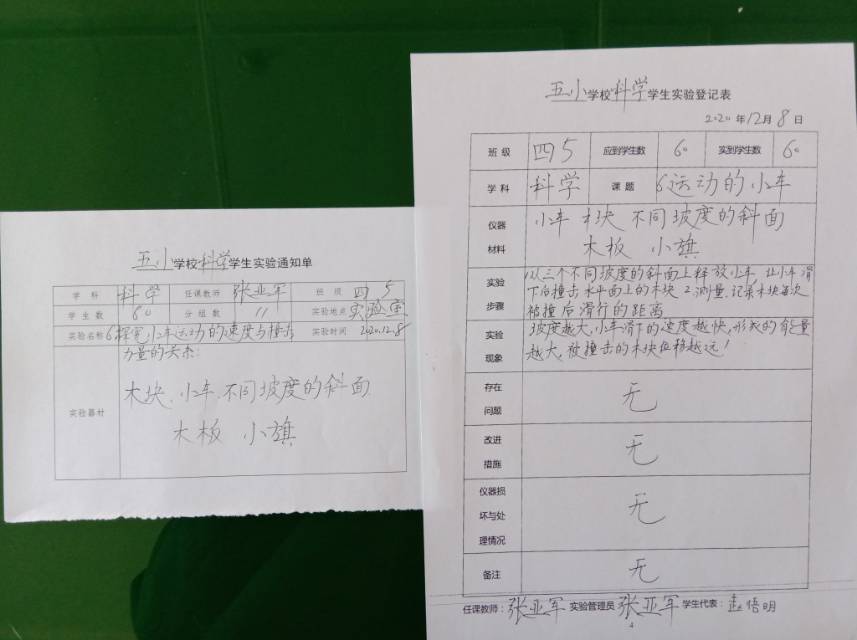 五小学校科学学生实验通知单
学科 科学 任课教师 张亚军 班级 四5
学生数 60 分组数 11 实验地点 实验室
实验名称 6探究小车运动的速度与撞击 实验时间 2020.12.8
力量的关系:
实验器材
木块、小车、不同坡度的斜面
木板 小旗
五小学校科学学生实验登记表
2020年12月8日
班级 四5 应到学生数 60 实到学生数 60
学科 科学 课题 6运动的小车
仪器材料 小车 木块 不同坡度的斜面
木板 小旗
实验步骤 1从三个不同坡度的斜面上释放小车,让小车滑
下后撞击水平面上的木块 2.测量、记录木块每次
被撞后滑行的距离
实验现象 坡度越大,小车滑下的速度越快,形成的能量
越大,被撞击的木块位移越远!
存在问题 无
改进措施 无
仪器损坏与处理情况 无
备注 无
任课教师:张亚军 实验管理员 张亚军 学生代表:赵悟明
4